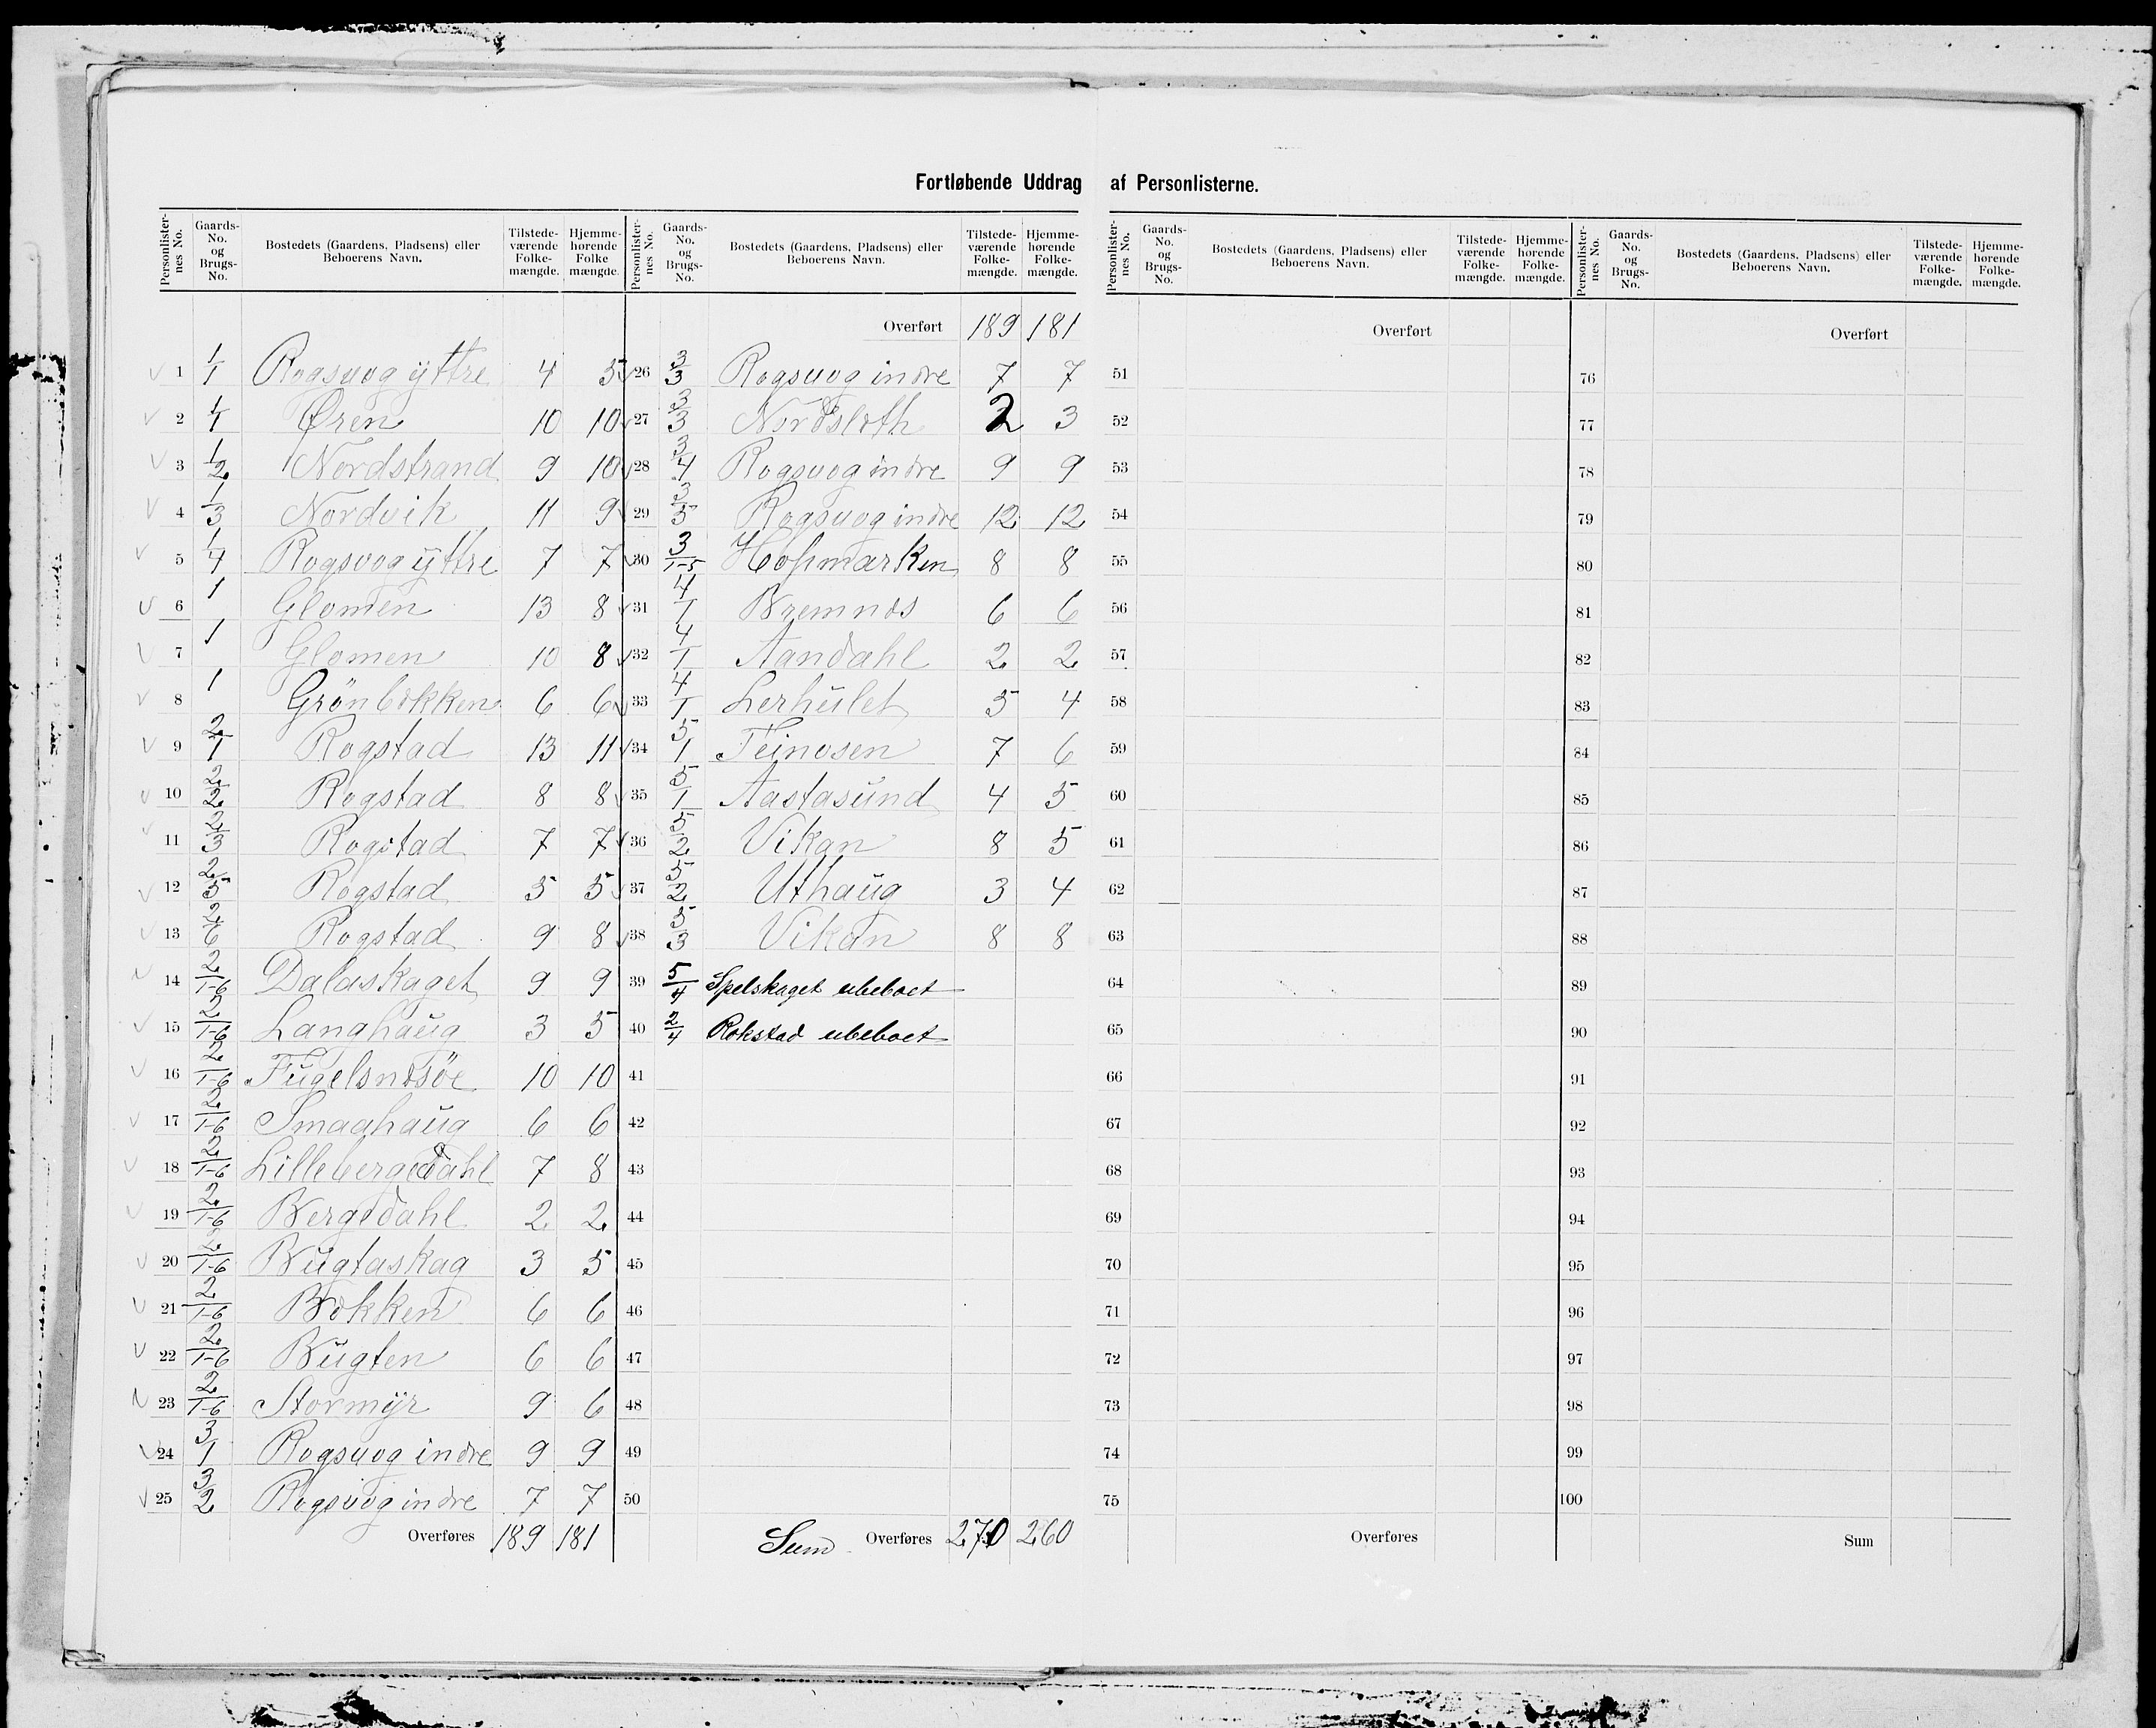 Fortløbende Uddrag af Personlisterne.
Personlisternes No. Gaards-No. og Brugs-No. Bostedets (Gaardens, Pladsens) eller Beboerens Navn. Tilstedeværende Folkemængde. Hjemmehørende Folkemængde.
1 1/1 Rogsvog ÿttre 4 5
2 1/1 Øren 10 10
3 1/2 Nordstrand 9 10
4 1/3 Nordvik 11 9
5 1/4 Rogsvog ÿttre 7 7
6 1 Glomen 13 8
7 1 Glomen 10 8
8 1 Grönbækken 6 6
9 2/1 Rogstad 13 11
10 2/2 Rogstad 8 8
11 2/3 Rogstad 7 7
12 2/5 Rogstad 5 5
13 2/6 Rogstad 9 8
14 2/1-6 Dalaskaget 9 9
15 2/1-6 Langhaüg 3 5
16 2/1-6 Fügelsnæsöe 10 10
17 2/1-6 Smaahaüg 6 6
18 2/1-6 Lillebergedahl 7 8
19 2/1-6 Bergedahl 2 2
20 2/1-6 Bügtaskag 3 5
21 2/1-6 Bækken 6 6
22 2/1-6 Bügten 6 6
23 2/1-6 Stormÿr 9 6
24 3/1 Rogsvog indre 9 9
25 3/2 Rogsvog indre 7 7
Overføres 189 181
Personlisternes No. Gaards-No. og Brugs-No. Bostedets (Gaardens, Pladsens) eller Beboerens Navn. Tilstedeværende Folkemængde. Hjemmehørende Folkemængde.
Overført 189 181
26 3/3 Rogsvog indre 7 7
27 3/3 Nordsleth 2 3
28 3/4 Rogsvog indre 9 9
29 3/5 Rogsvog indre 12 12
30 3/1-5 Hopmarken 8 8
31 4/1 Bremnæs 6 6
32 4/1 Aandahl 2 2
33 4/1 Lerhület 5 4
34 5/1 Teinosen 7 6
35 5/1 Aastasünd 4 5
36 5/2 Vikan 8 5
37 5/2 Uthaüg 3 4
38 5/3 Vikan 8 8
39 5/4 Spelskaget ubeboet
40 2/4 Rokstad ubeboet
41
42
43
44
45
46
47
48
49
50
Sum Overføres 270 260
Personlisternes No. Gaards-No. og Brugs-No. Bostedets (Gaardens, Pladsens) eller Beboerens Navn. Tilstedeværende Folkemængde. Hjemmehørende Folkemængde.
Overført
51
52
53
54
55
56
57
58
59
60
61
62
63
64
65
66
67
68
69
70
71
72
73
74
75
Overføres
Personlisternes No. Gaards-No. og Brugs-No. Bostedets (Gaardens, Pladsens) eller Beboerens Navn. Tilstedeværende Folkemængde. Hjemmehørende Folkemængde.
Overført
76
77
78
79
80
81
82
83
84
85
86
87
88
89
90
91
92
93
94
95
96
97
98
99
100
Sum